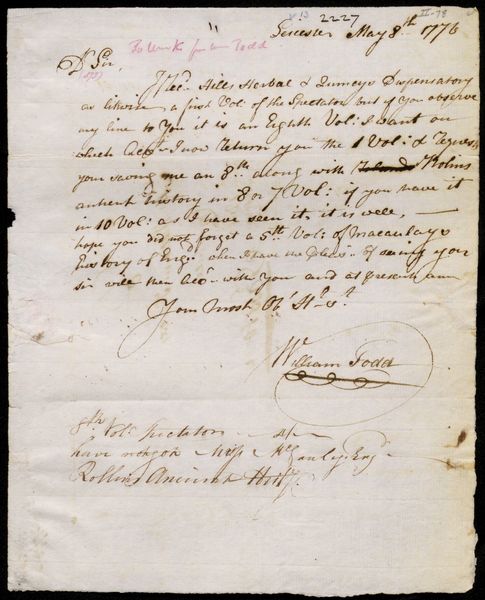 2227
II-78
Leicester May 8th 1776
Dr Sir
I Recd Hills Herbal & Quincys Dispensatory
as likewise a first Vol: of the Spectator but if you observe
my line to You it is an Eighth Vol: I want on
which Acct I now Return you the 1 Vol: & Request
your saving me an 8th along with Rolins
antient history in 8 or 7 Vol: if you have it
in 10 Vol: as I have seen it, it is well,
hope you did not forget a 5th Vol: of Macaulays
history of Engd when I have the pleasr of seeing you
sir will then Acct with you and at present am
Your most Ob' St
Wm
William Todd
8th Vol. Spectator
have not got Miss McCauley Engd
Rollins Ancient Hist